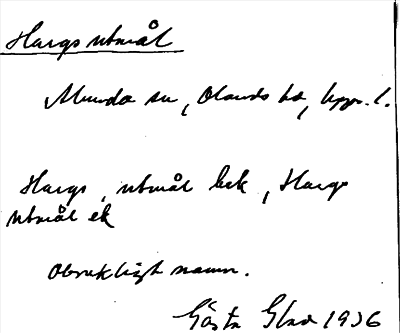 Hargs utmål
Alunda sn, Olands hd, Upps. l.
Hargs, utmål bek, Hargs
utmål ek
Obrukligt namn.
Gösta 1936